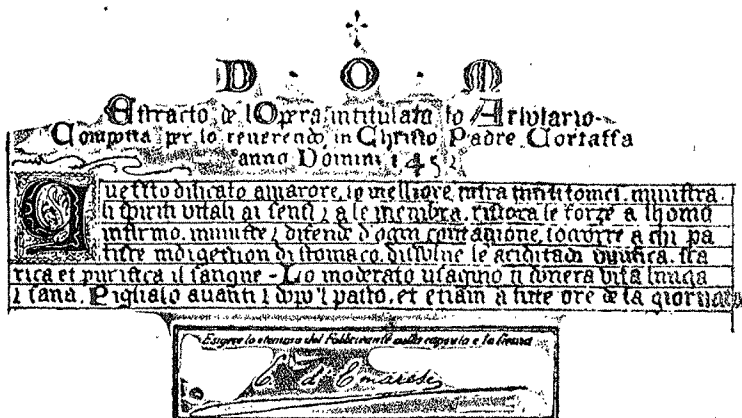 D · O · M
Estracto de l'Opera intitulata lo
Composta per lo reverendo in Christo Padre Cortassa
anno Domini 145
Questo dilicato amarore, lo melliore intra tutti tonici, ministra
li spiriti vitali ai sensi z a le membra, ristora le forze a lhomo
infirmo, z difende d'ogni contagione, socorre a chi pa
tisce indigestion di stomaco, dissolve le aciditadi vivifica,
rica et purifica il sangue - Lo moderato usagino ti donera vita lunga
z sana. Piglialo avanti z dopo 'l pasto, et etiam a tute ore de la giornata
Esigere lo stemma del Fabbricante sulla capsula e la firma